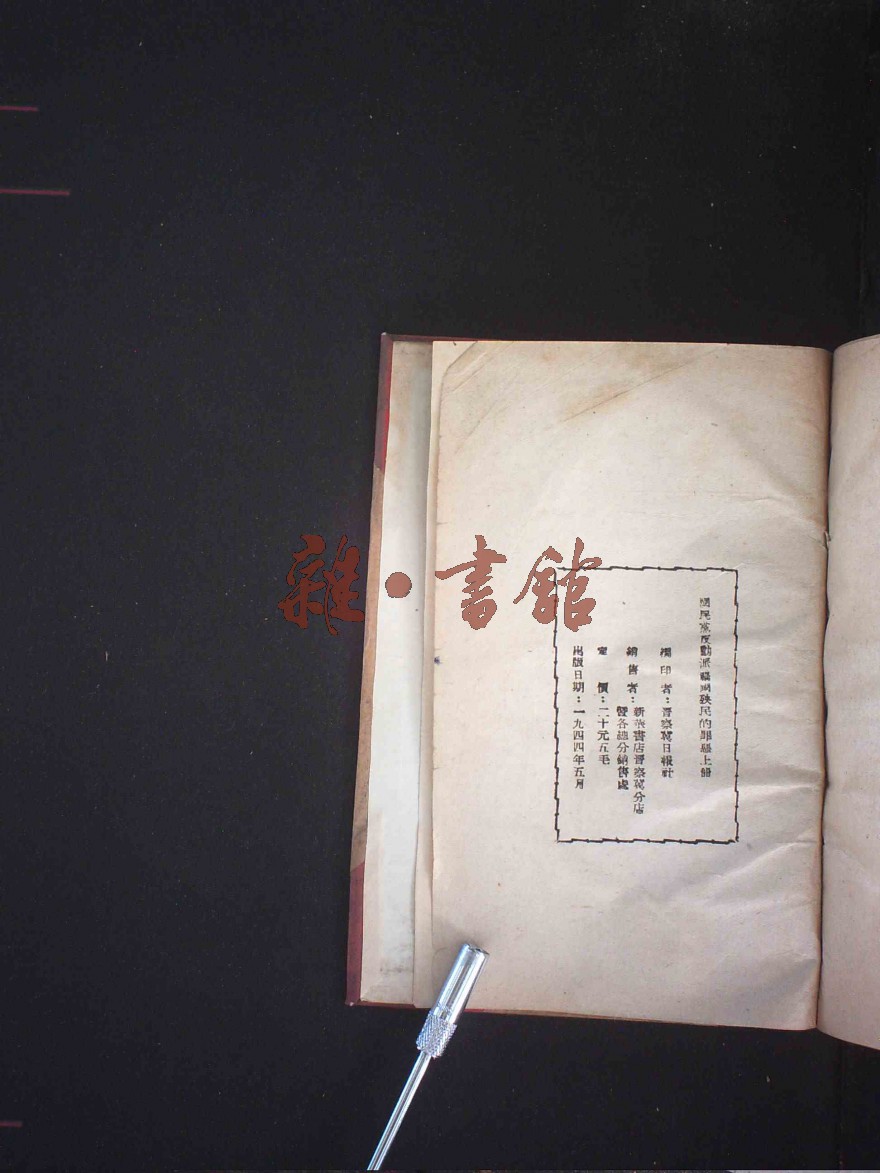 國民黨反動派禍國殃民的罪惡上冊
編印者：晉察冀日報社
銷售者：新華書店晉察冀分店
暨各總分銷售處
定價：二十元五毛
出版日期：一九四四年五月
雜·書館